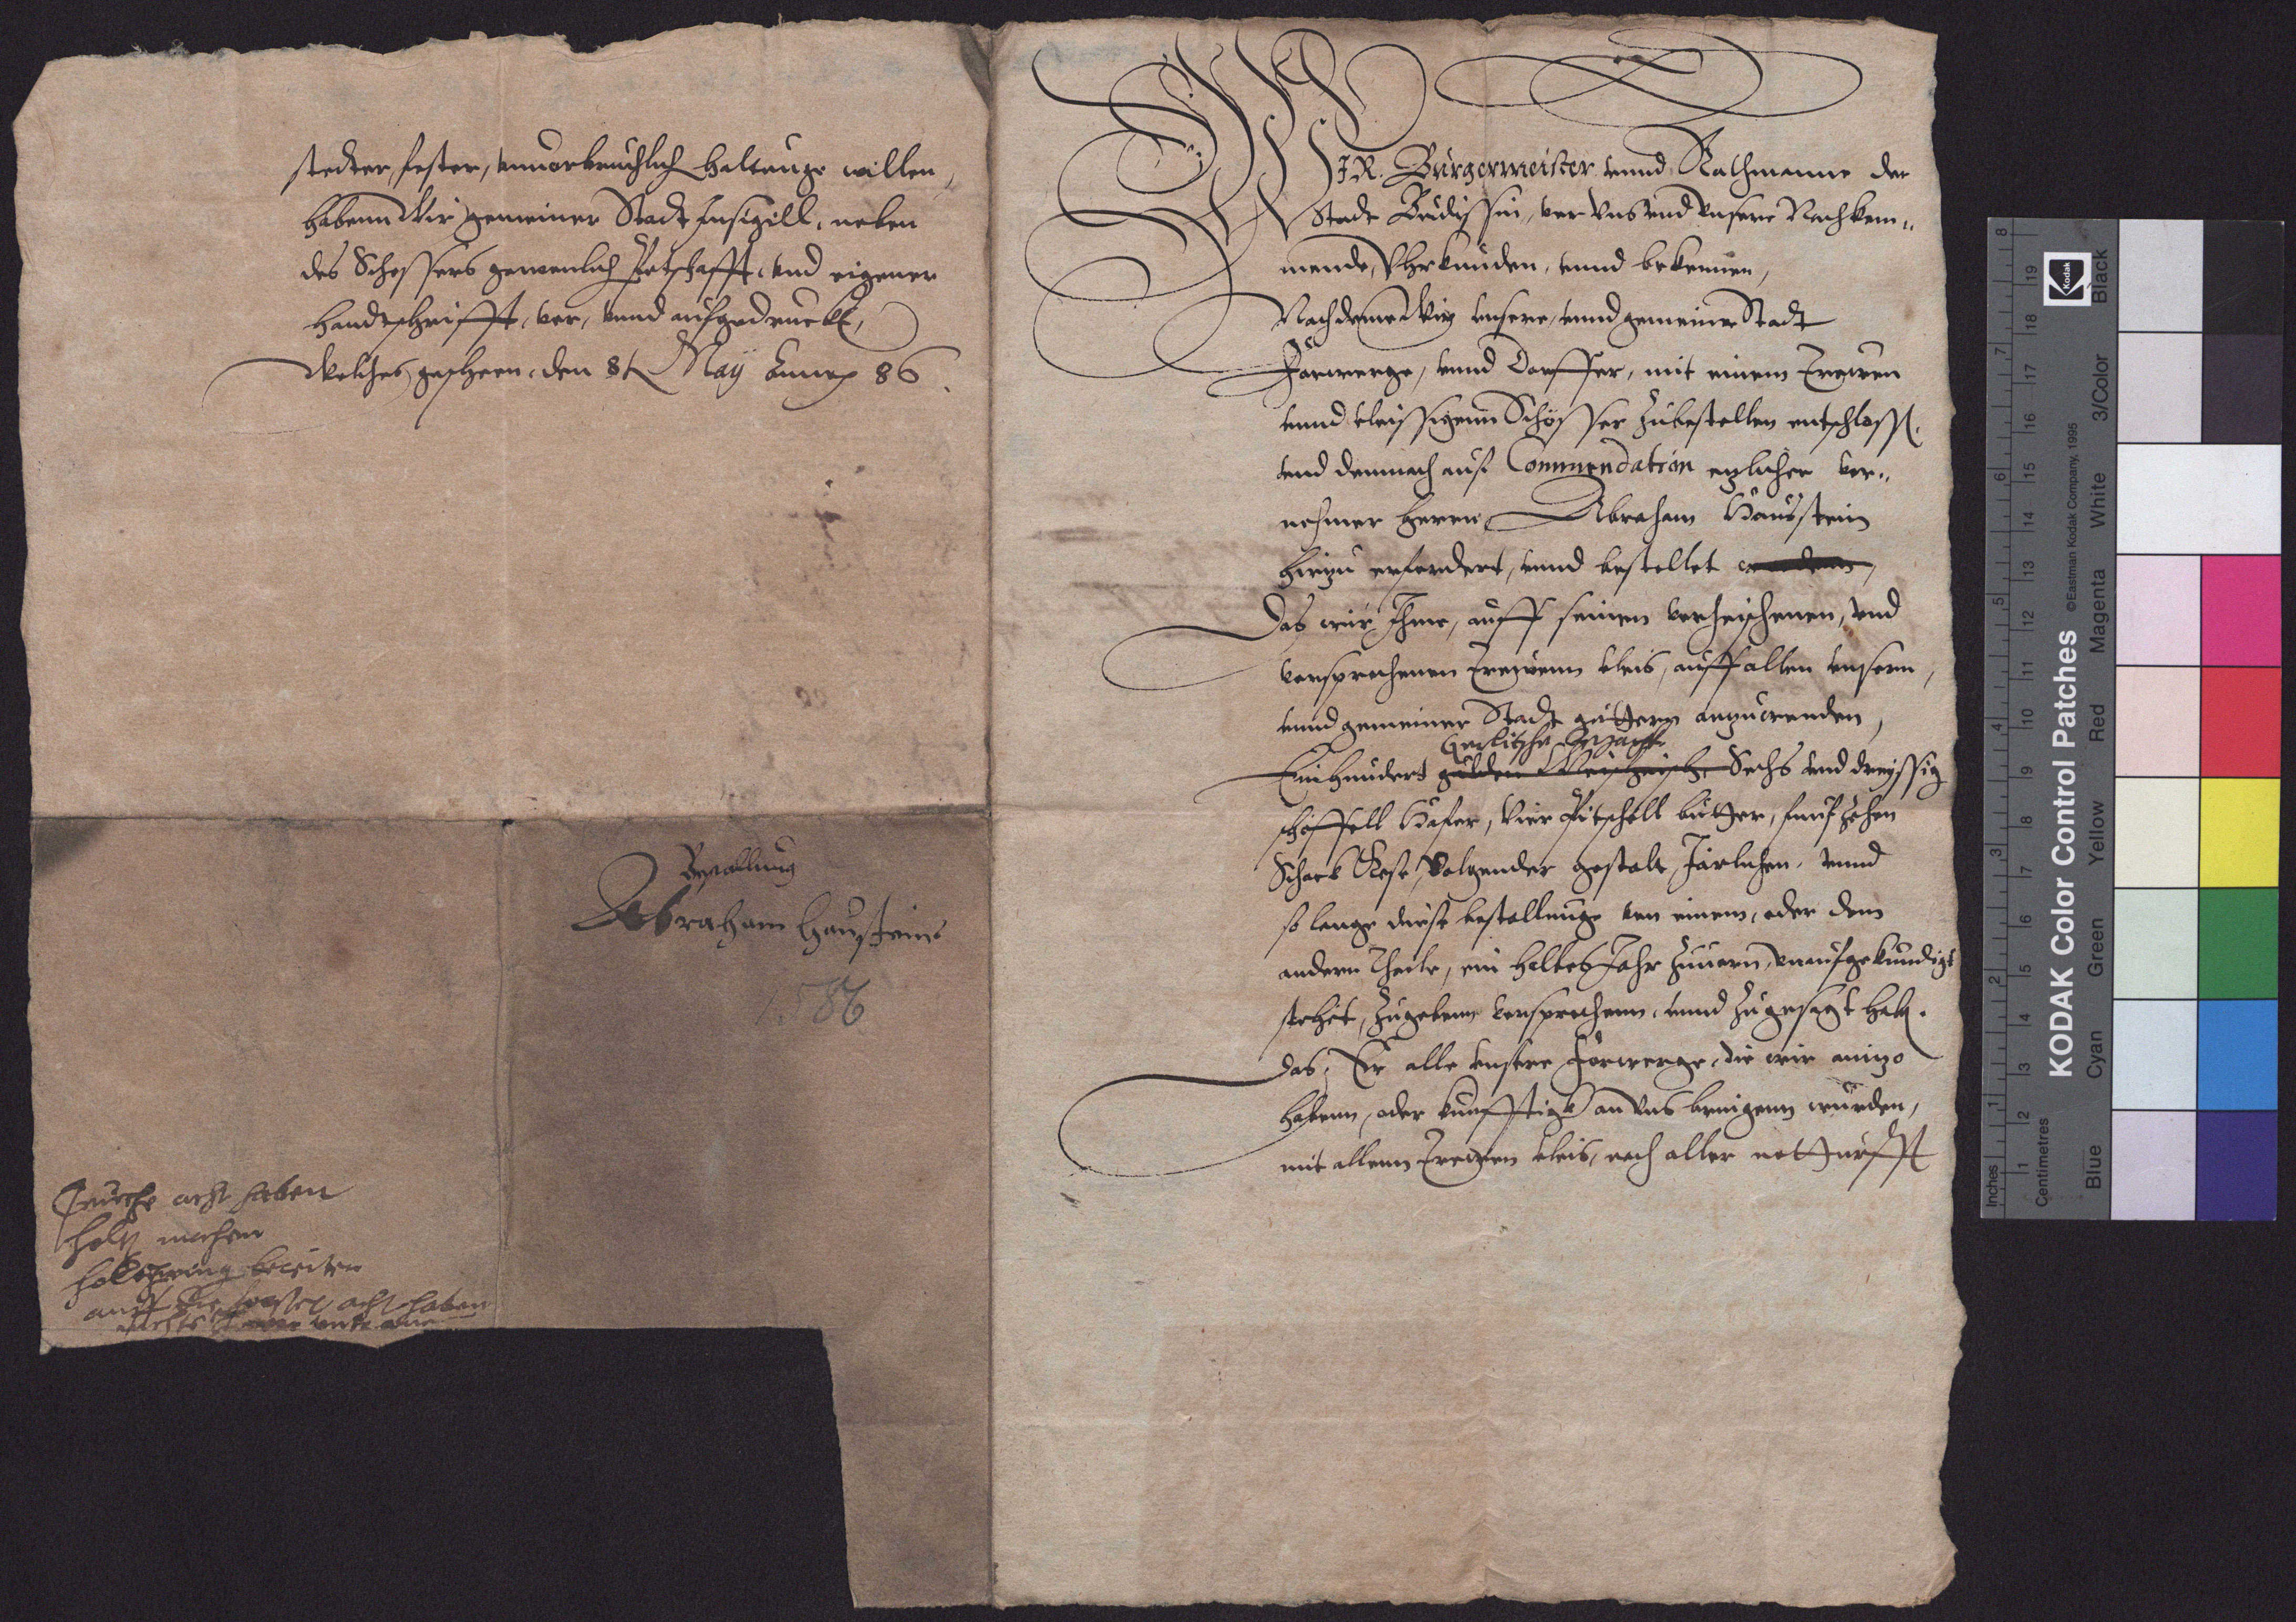 stedter, fester, vnuorbruchlich haltunge willen,
habenn Wir gemeiner Stadt Insigill, neben
des Schossers gewenlich Petschafft, vnd eigener
handtschrifft, vor, vnnd aufgedruckt,
Welches gescheen, den 8t Maÿ Anno 86.
Bestallung
Abraham Hausteins
1586
acht haben
holtz machen
bereiten
auff die acht haben
WIR. Burgermeister vnnd Rathmanne der
Stadt Budissin, vor Vns vnd Vnsere Nachkom„
mende, Vhrkunden, vnnd bekennen,
Nachdeme Wir vnsere, vnnd gemeiner Stadt
Forwerge, vnnd Dorffer, mit einem Trewen
vnnd vleissigenn Schösser zubestellen entschloss.
vnd demnach auf Commendation etzlicher vor„
nehmer herrn, Abraham Haustein
hirzu erfordert, vnnd bestellet worden,
Das wir Ihme, auff seinen verheischenen, vnd
versprochenen Trewenn vleis, auff allen vnsern,
vnnd gemeiner Stadt guttern anzuwenden,
Gorlitzsche
Einhundert gulden Sechs vnd dreyssig
scheffell Hafer, Vier Pitschell butter, funfzehen
Schock Kese, Volgender gestalt Jarlichen, vnnd
so lange diese bestallunge von einem, oder dem
andern Theile, ein halbes Jahr zuuorn, vnaufgekundigt
stehet, zugebenn versprochenn, vnnd zugesagt hab.
Das, Er alle vnsere Forwerge, die wir anizo
habenn, oder kunfftigk an Vns bringenn wurden,
mit allenn Trewen vleis, nach aller notturfft